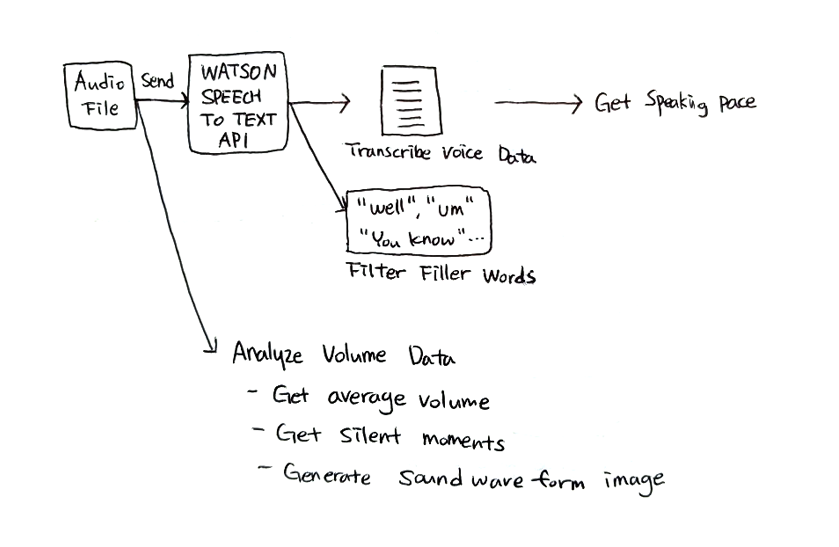 Audio
File
Send
WATSON
SPEECH
TO TEXT
API
Transcribe Voice Data
Get Speaking pace
"well", "um"
"You know"...
Filter Filler Words
Analyze Volume Data
- Get average volume
- Get silent moments
- Generate sound wave form image